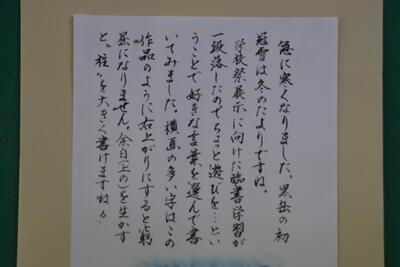 急に寒くなりました、黒岳の初
冠雪は冬のたよりですね。
学校祭展示に向けた臨書学習が
一段落したのでちょっと遊びを…とい
うことで好きな言葉を選んで書
いてみました。横画の多い字はこの
作品のように右上がりにすると窮
屈になりません。余白(上の)を生かす
と〝柱〟を大きく書けますね!!